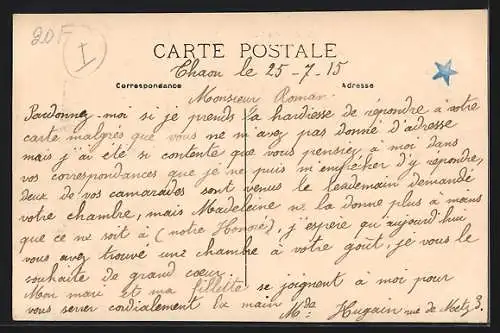 20F
I
CARTE POSTALE
Chaon le 25-7-15
Correspondance Adresse
Monsieur Roman.
Pardonnez-moi si je prends la hardiesse de répondre à votre
carte malgrés que vous ne m'avez pas donné d'adresse
mais j'ai été si contente que vous pensiez à moi dans
vos correspondances que je ne puis m'empêcher d'y repondre,
deux de vos camarades sont venus le lendemain demandé
votre chambre, mais Madeleine ne la donne plus a moins
que ce ne soit à (notre Honoré), j'espère qu'aujourd'hui
vous avez trouvé une chambre à votre goût, je vous le
souhaite de grand coeur.
Mon mari et ma fillette se joignent à moi pour
vous serrer cordialement la main Mde Hugain rue de Metz 3.